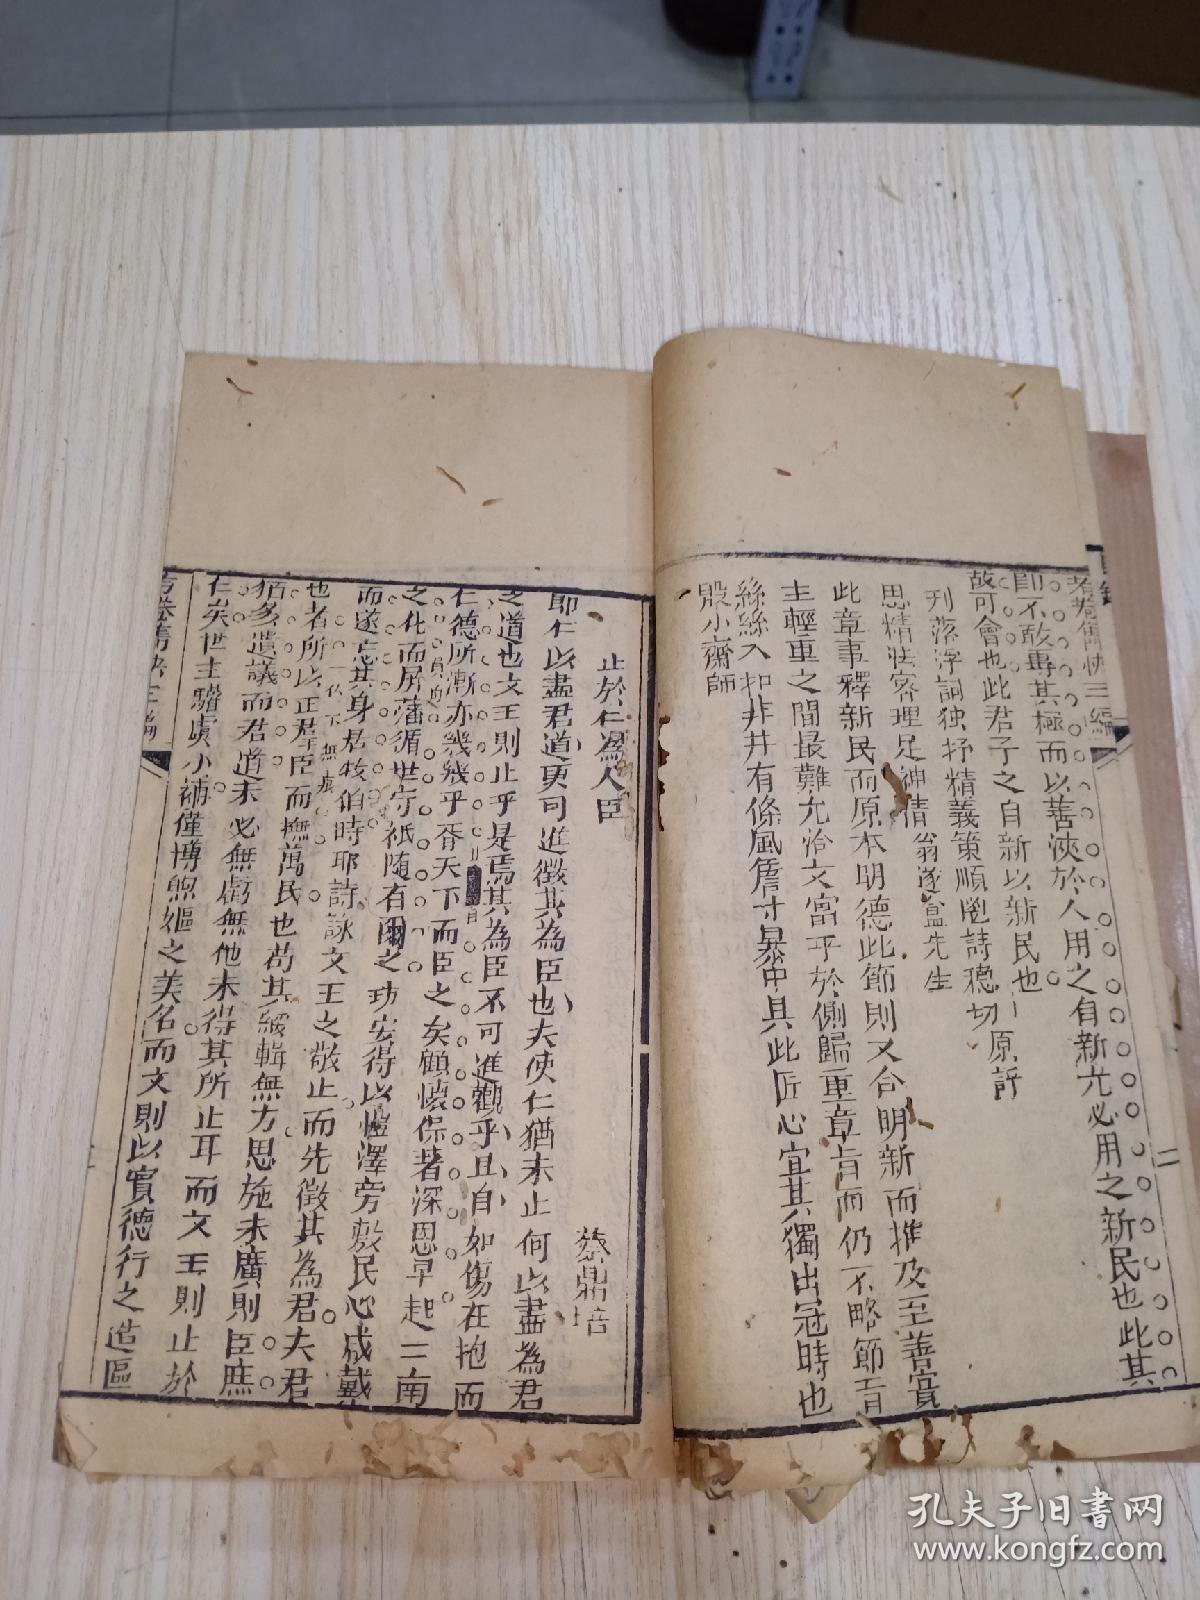 考卷雋快三編
二
即不敢專其極而以善浹於人用之自新尤必用之新民也此其
故可會也此君子之自新以新民也 原評
刊落浮詞独抒精義策順鬯詩穏切
思精法密理足神倩 翁邃盦先生
此章事釋新民而原本明德此節則又合明新而推及至善賓
主輕重之間最難允洽文當平於側歸重章肯而仍不略節旨
絲絲入扣井井有條風簷寸晷中具此匠心宜其獨出冠時也
殷小齋師
止於仁為人臣
蔡鼎培
即仁以盡君道更可進徵其為臣也夫使仁猶未止何以盡為君
之道也文王則止乎是焉其為臣不可進觀乎且自如傷在抱而
仁德所漸亦幾幾乎胥天下而臣之矣顧懷保著深恩早起二南
之化而屏藩循世守祇隨有爾之功安得以愷澤旁敷民心咸戴
而遂忘其身居牧伯時耶詩詠文王之敬止而先徵其為君夫君
也者所以正羣臣而撫萬民也苟其緩輯無方思施未廣則臣庶
猶多遺議而君道未必無虧無他未得其所止耳而文王則止於
仁矣世主驩虞小補僅博煦嫗之美名而文則以實德行之造區
考卷雋快三編
孔夫子旧書网
www.kongfz.com